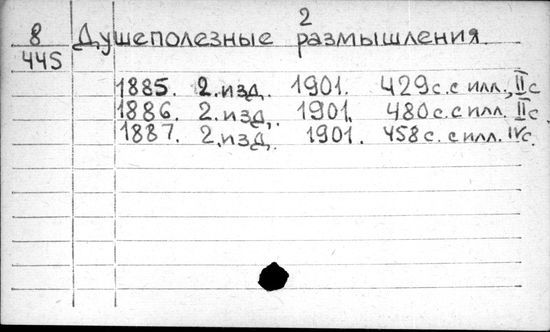 2
8 Душеполезные размышления.
445
1885. 2. изд. 1901. 429с. с илл., IIс
1886. 2. изд. 1901. 480с. с илл. IIс.
1887. 2. изд. 1901. 458с. с илл. IVс.